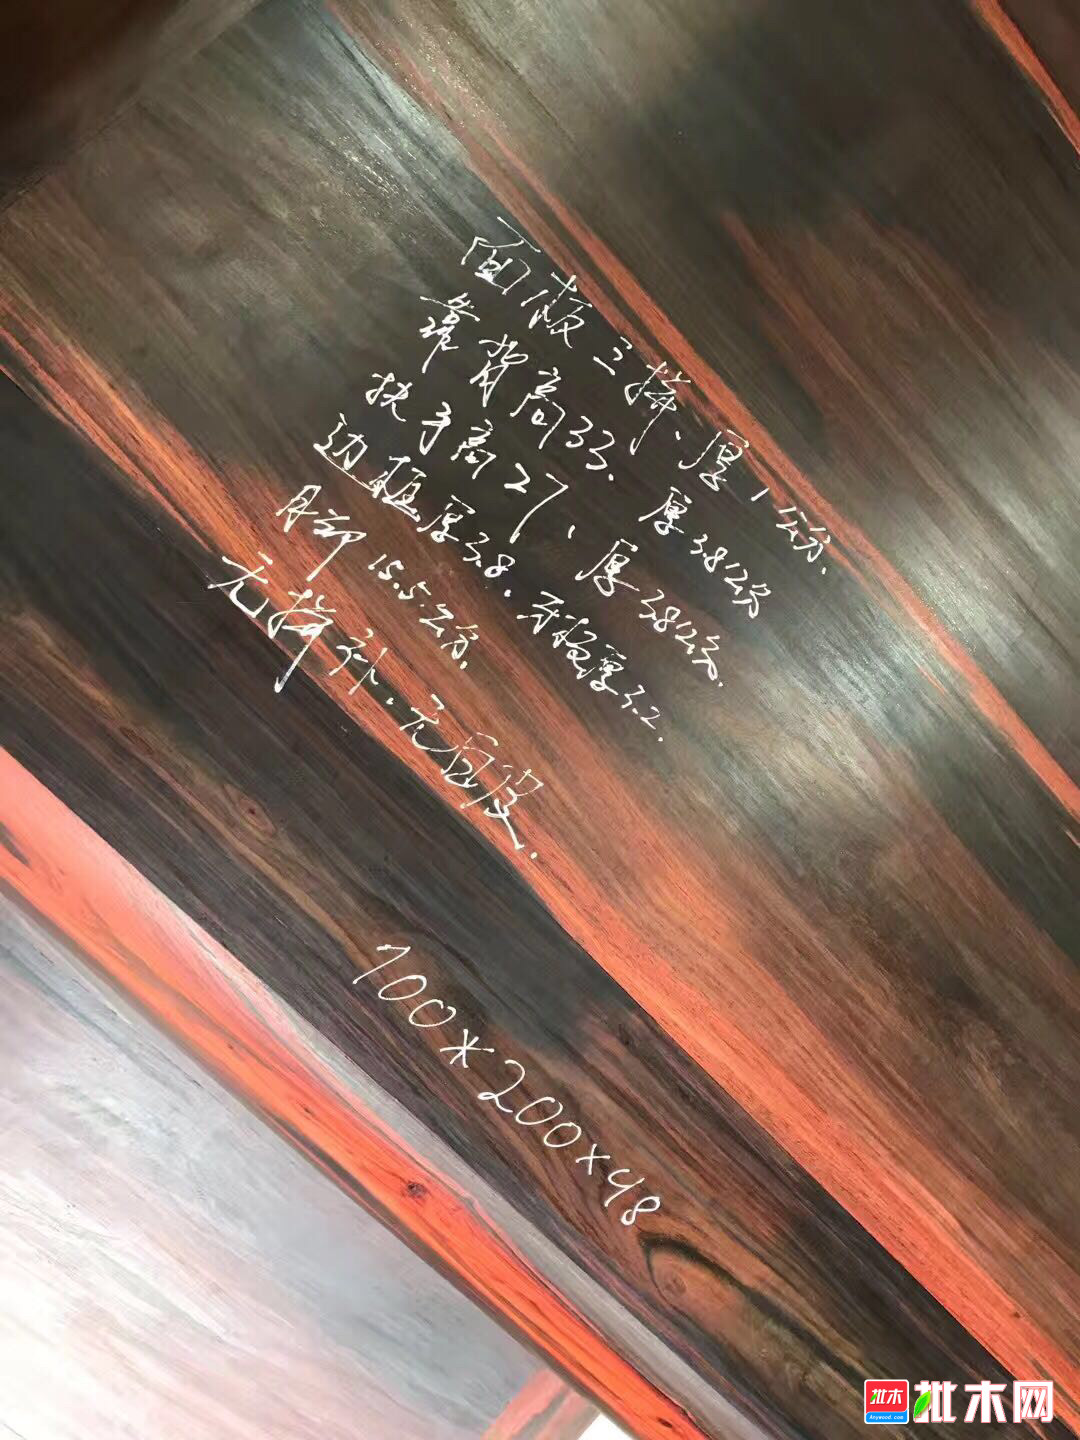 面板三拼、厚1公分、
靠背高33、厚3.8公分
扶手高27、厚3.8公分、
边框厚3.8、牙板厚3.2.
月却15.5公分、
无拼补、无白皮.
100*200×48
批木
Anywood.com
批木网